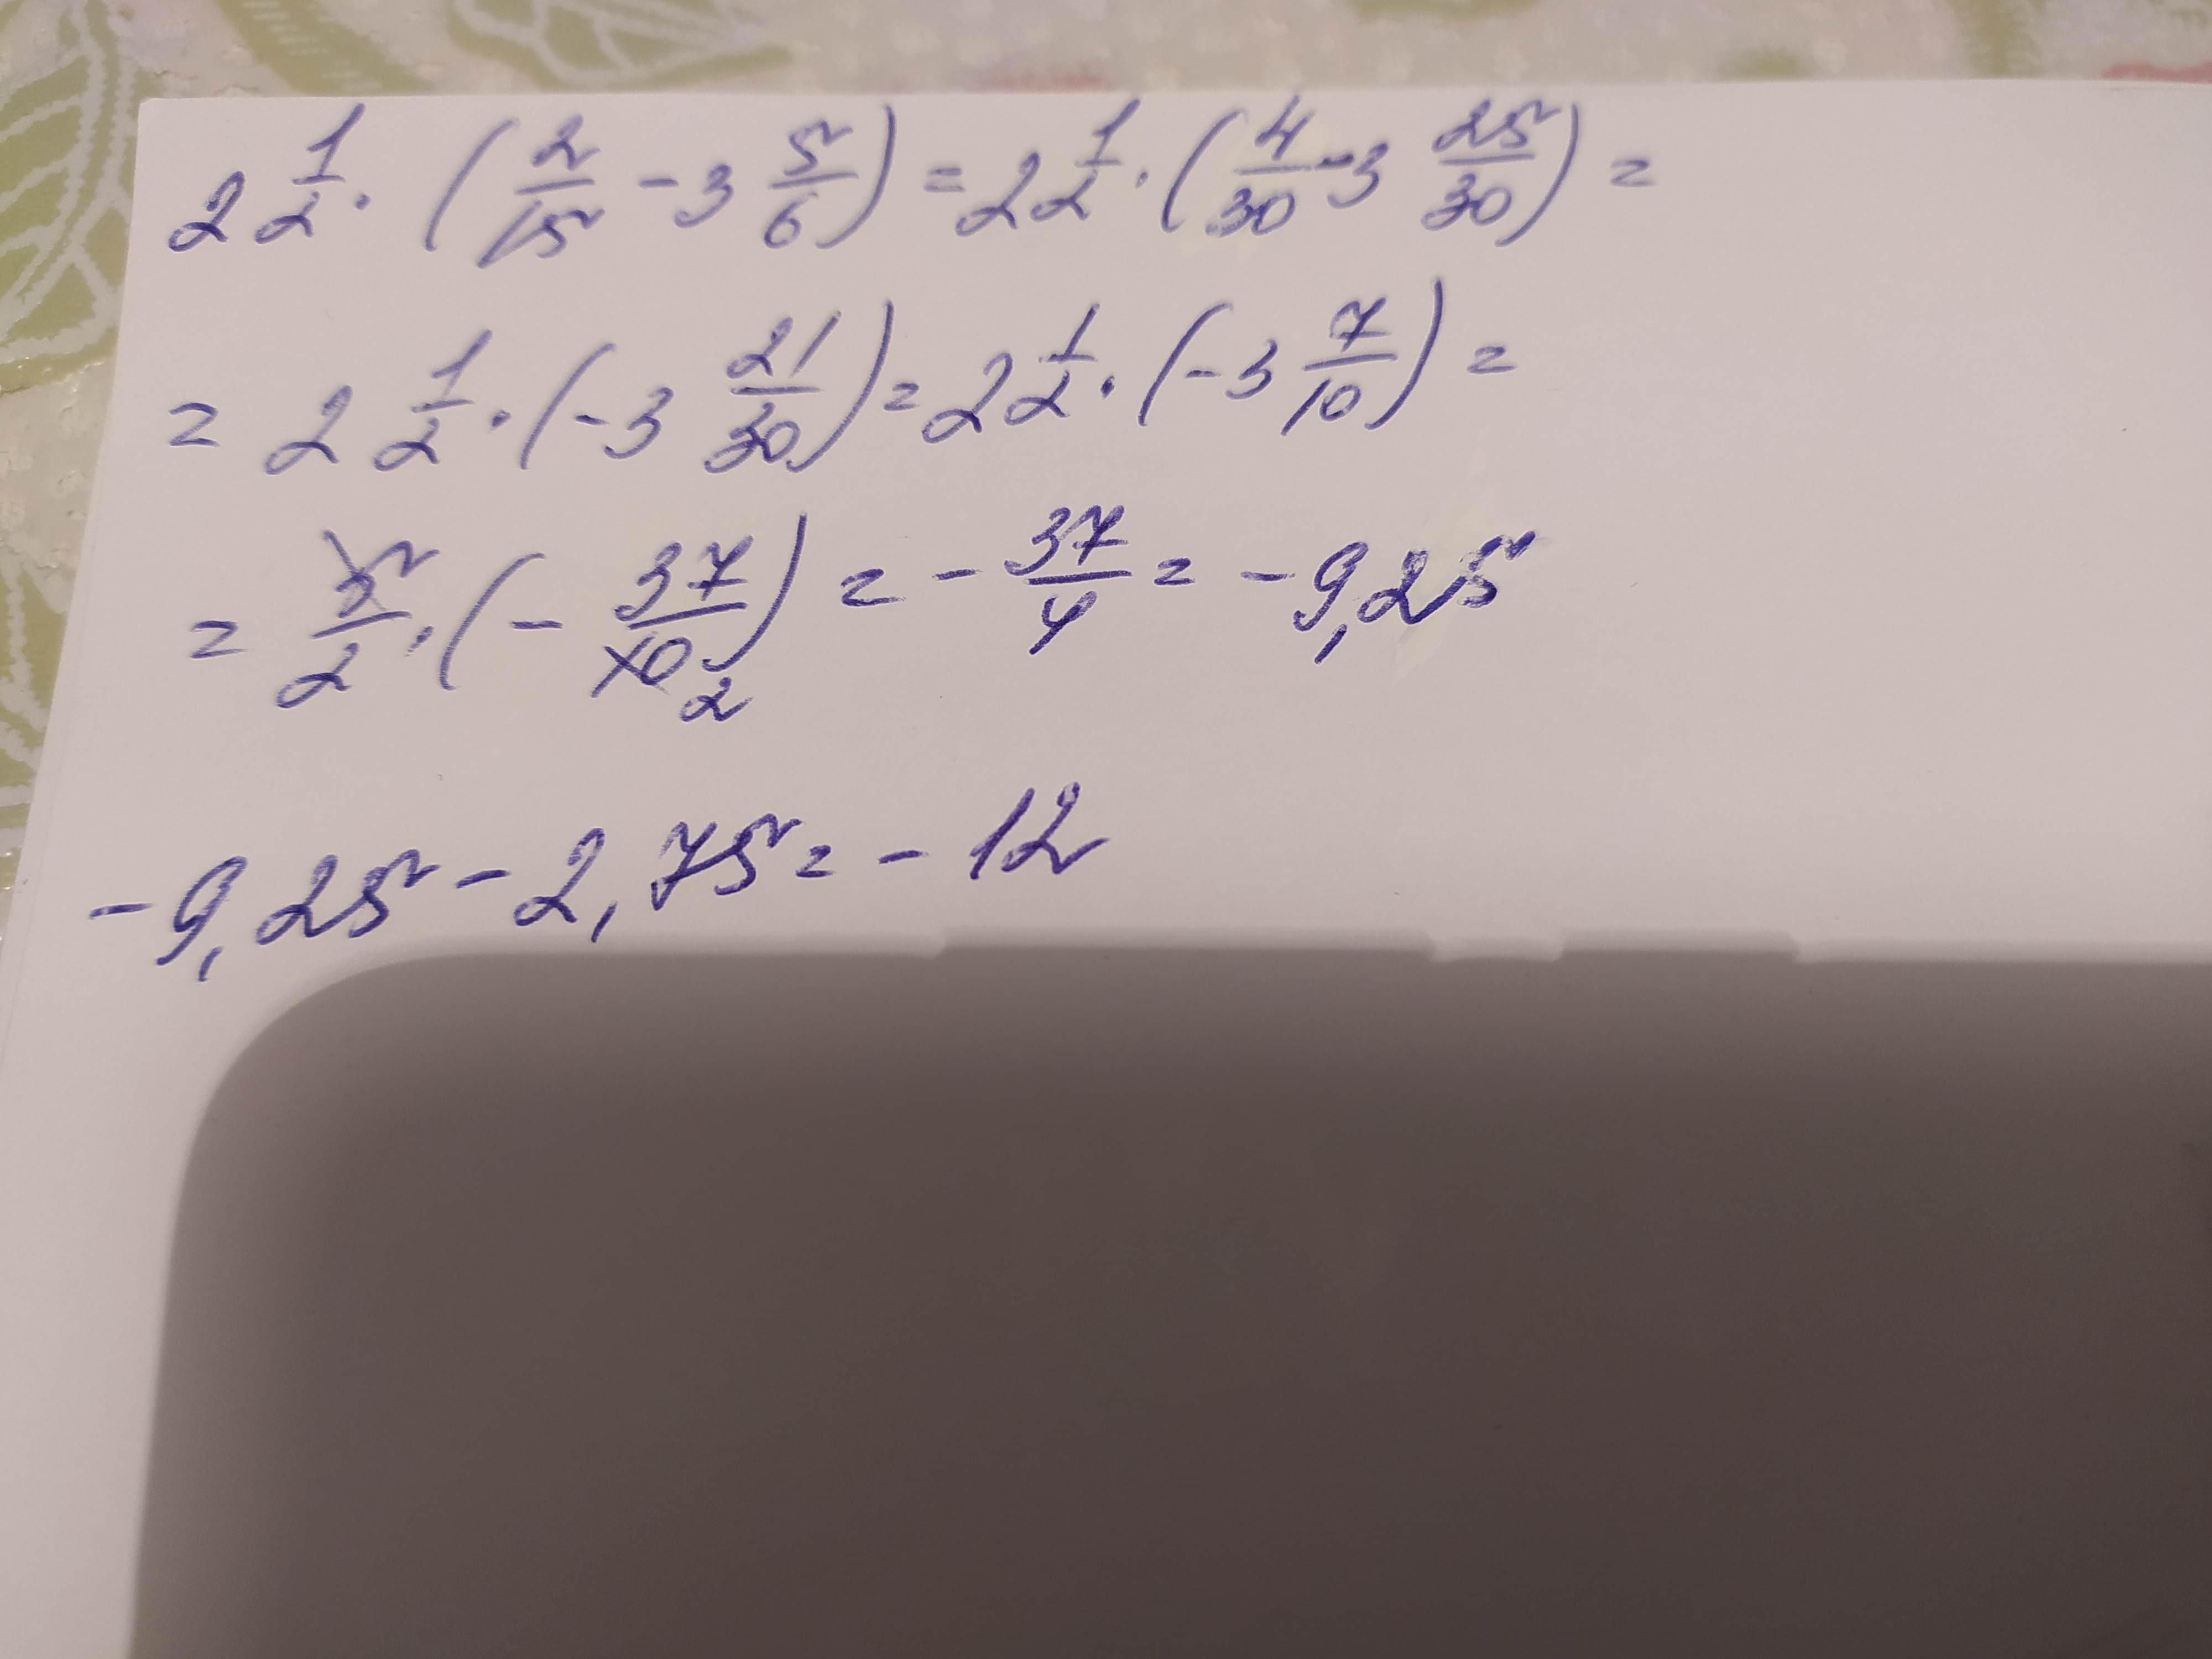 2 1/2 · (2/15 - 3 5/6) = 2 1/2 · (4/30 - 3 25/30) =
= 2 1/2 · (-3 21/30) = 2 1/2 · (-3 7/10) =
= 5/2 · (- 37/10 2) = - 37/4 = - 9,25
- 9,25 - 2,75 = - 12